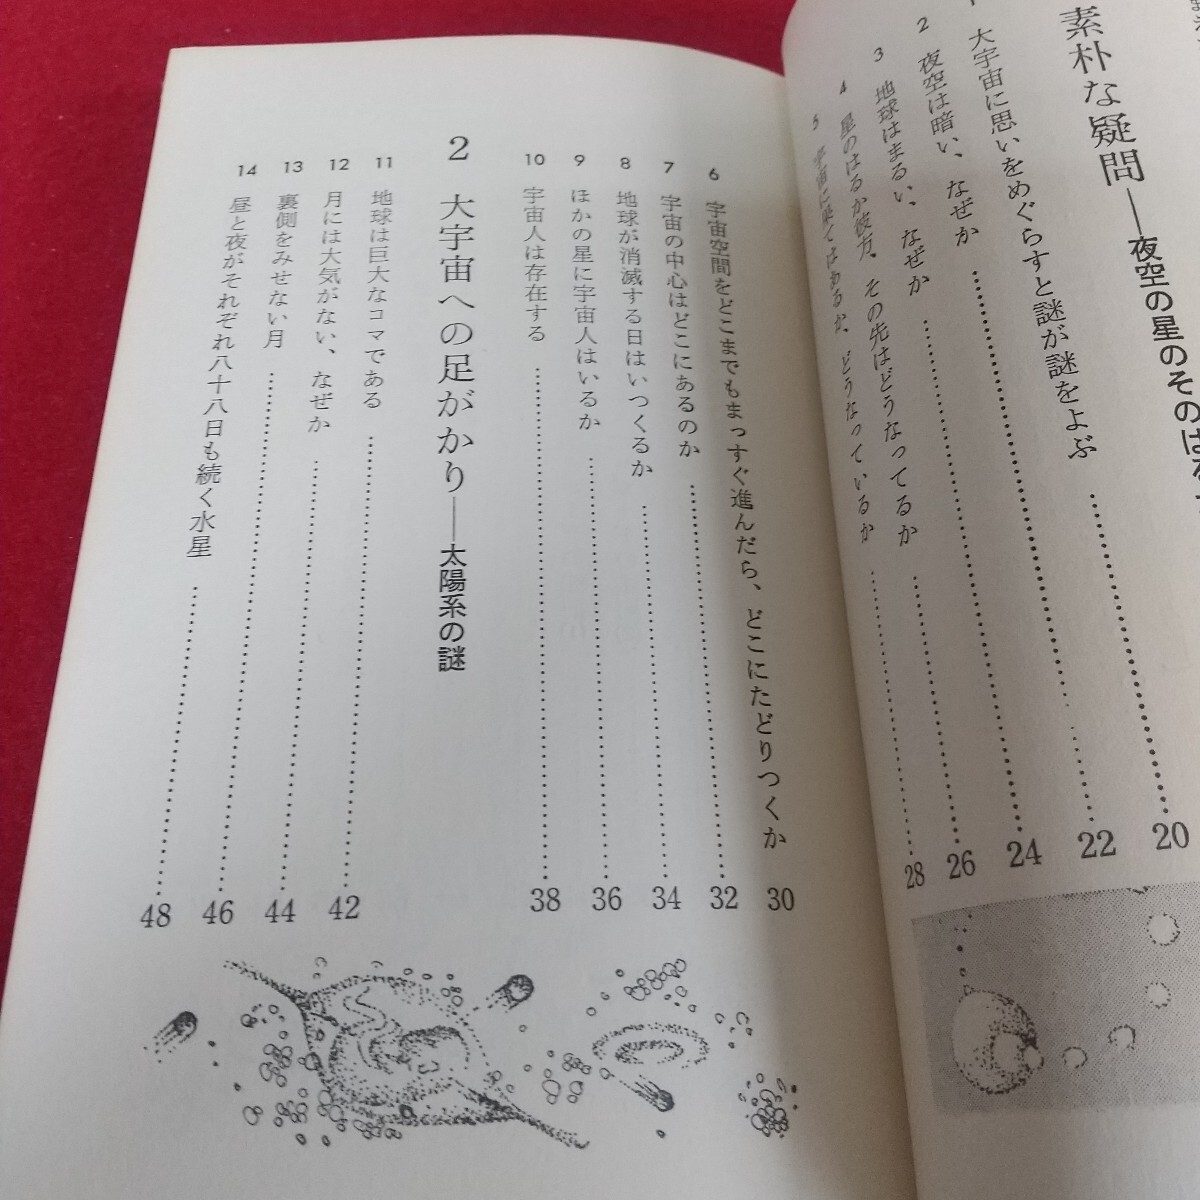 素朴な疑問――夜空の星のそのはる
1 大宇宙に思いをめぐらすと謎が謎をよぶ……20
2 夜空は暗い、なぜか……22
3 地球はまるい、なぜか……24
4 星のはるか彼方、その先はどうなってるか……26
5 宇宙に果てはあるか、どうなっているか……28
6 宇宙空間をどこまでもまっすぐ進んだら、どこにたどりつくか 30
7 宇宙の中心はどこにあるのか……32
8 地球が消滅する日はいつくるか……34
9 ほかの星に宇宙人はいるか……36
10 宇宙人は存在する……38
2 大宇宙への足がかり――太陽系の謎
11 地球は巨大なコマである……42
12 月には大気がない、なぜか……44
13 裏側をみせない月……46
14 昼と夜がそれぞれ八十八日も続く水星……48